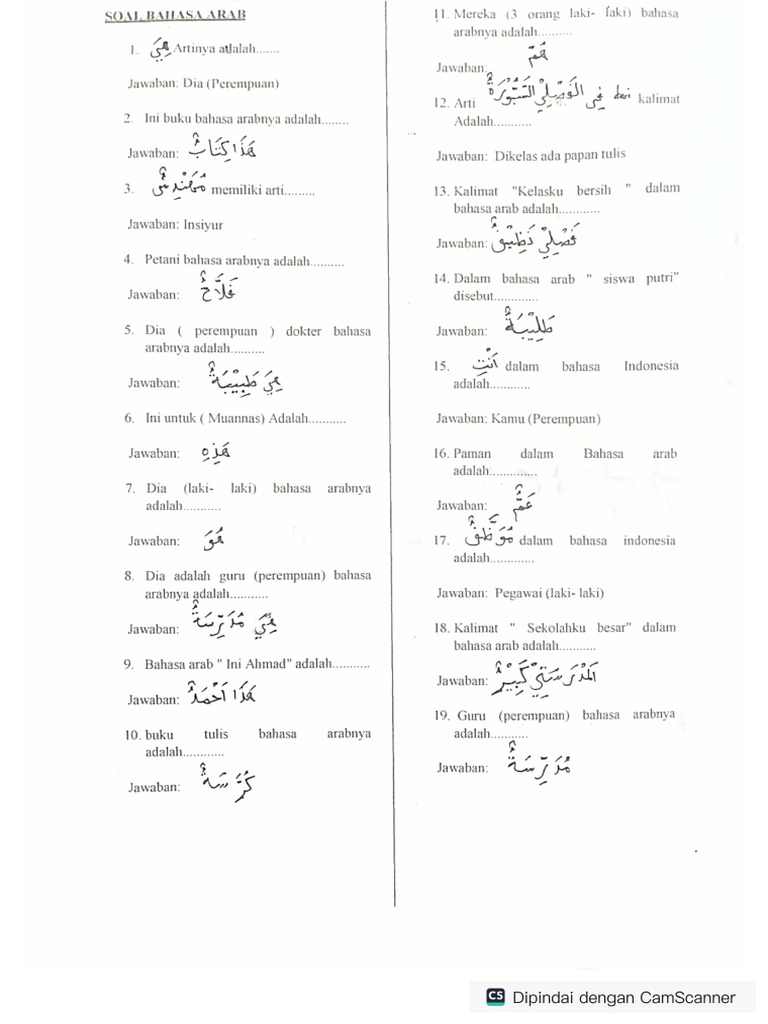 SOAL BAHASA ARAB
1. هِيَ Artinya adalah.......
Jawaban: Dia (Perempuan)
2. Ini buku bahasa arabnya adalah........
Jawaban: هَذَا كِتَابٌ
3. مُهَنْدِسٌ memiliki arti.........
Jawaban: Insiyur
4. Petani bahasa arabnya adalah..........
Jawaban: فَلَّاحٌ
5. Dia ( perempuan ) dokter bahasa
arabnya adalah..........
Jawaban: هِيَ طَبِيْبَةٌ
6. Ini untuk ( Muannas) Adalah...........
Jawaban: هَذِهِ
7. Dia (laki- laki) bahasa arabnya
adalah...........
Jawaban: هُوَ
8. Dia adalah guru (perempuan) bahasa
arabnya adalah...........
Jawaban: هِيَ مُدَرِّسَةٌ
9. Bahasa arab " Ini Ahmad" adalah...........
Jawaban: هَذَا اَحْمَدٌ
10. buku tulis bahasa arabnya
adalah............
Jawaban: كُرَّسَةٌ
11. Mereka (3 orang laki- laki) bahasa
arabnya adalah..........
Jawaban: هُمْ
12. Arti فِى الفَصْلِيْ السَّبُّوْرَةٌ kalimat
Adalah...........
Jawaban: Dikelas ada papan tulis
13. Kalimat "Kelasku bersih " dalam
bahasa arab adalah............
Jawaban: فَصْلِيْ
14. Dalam bahasa arab " siswa putri"
disebut.............
Jawaban: طَلِيْبَةٌ
15. أَنْتِ dalam bahasa Indonesia
adalah............
Jawaban: Kamu (Perempuan)
16. Paman dalam Bahasa arab
adalah:.............
Jawaban: عَمٌّ
17. مُوَظَّفٌ dalam bahasa indonesia
adalah.............
Jawaban: Pegawai (laki- laki)
18. Kalimat " Sekolahku besar" dalam
bahasa arab adalah...........
Jawaban: اَلمَدْرَسَتِيْ كَبِيْرٌ
19. Guru (perempuan) bahasa arabnya
adalah...........
Jawaban: مُدَرِّسَةٌ
CS Dipindai dengan CamScanner